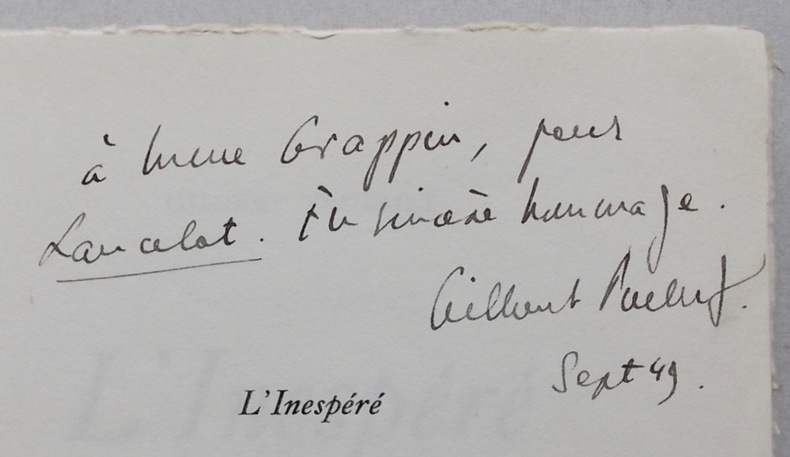 à Grappin, pour
Lancelot. En sincère hommage.
Gilbert
Sept 49.
L'Inespéré